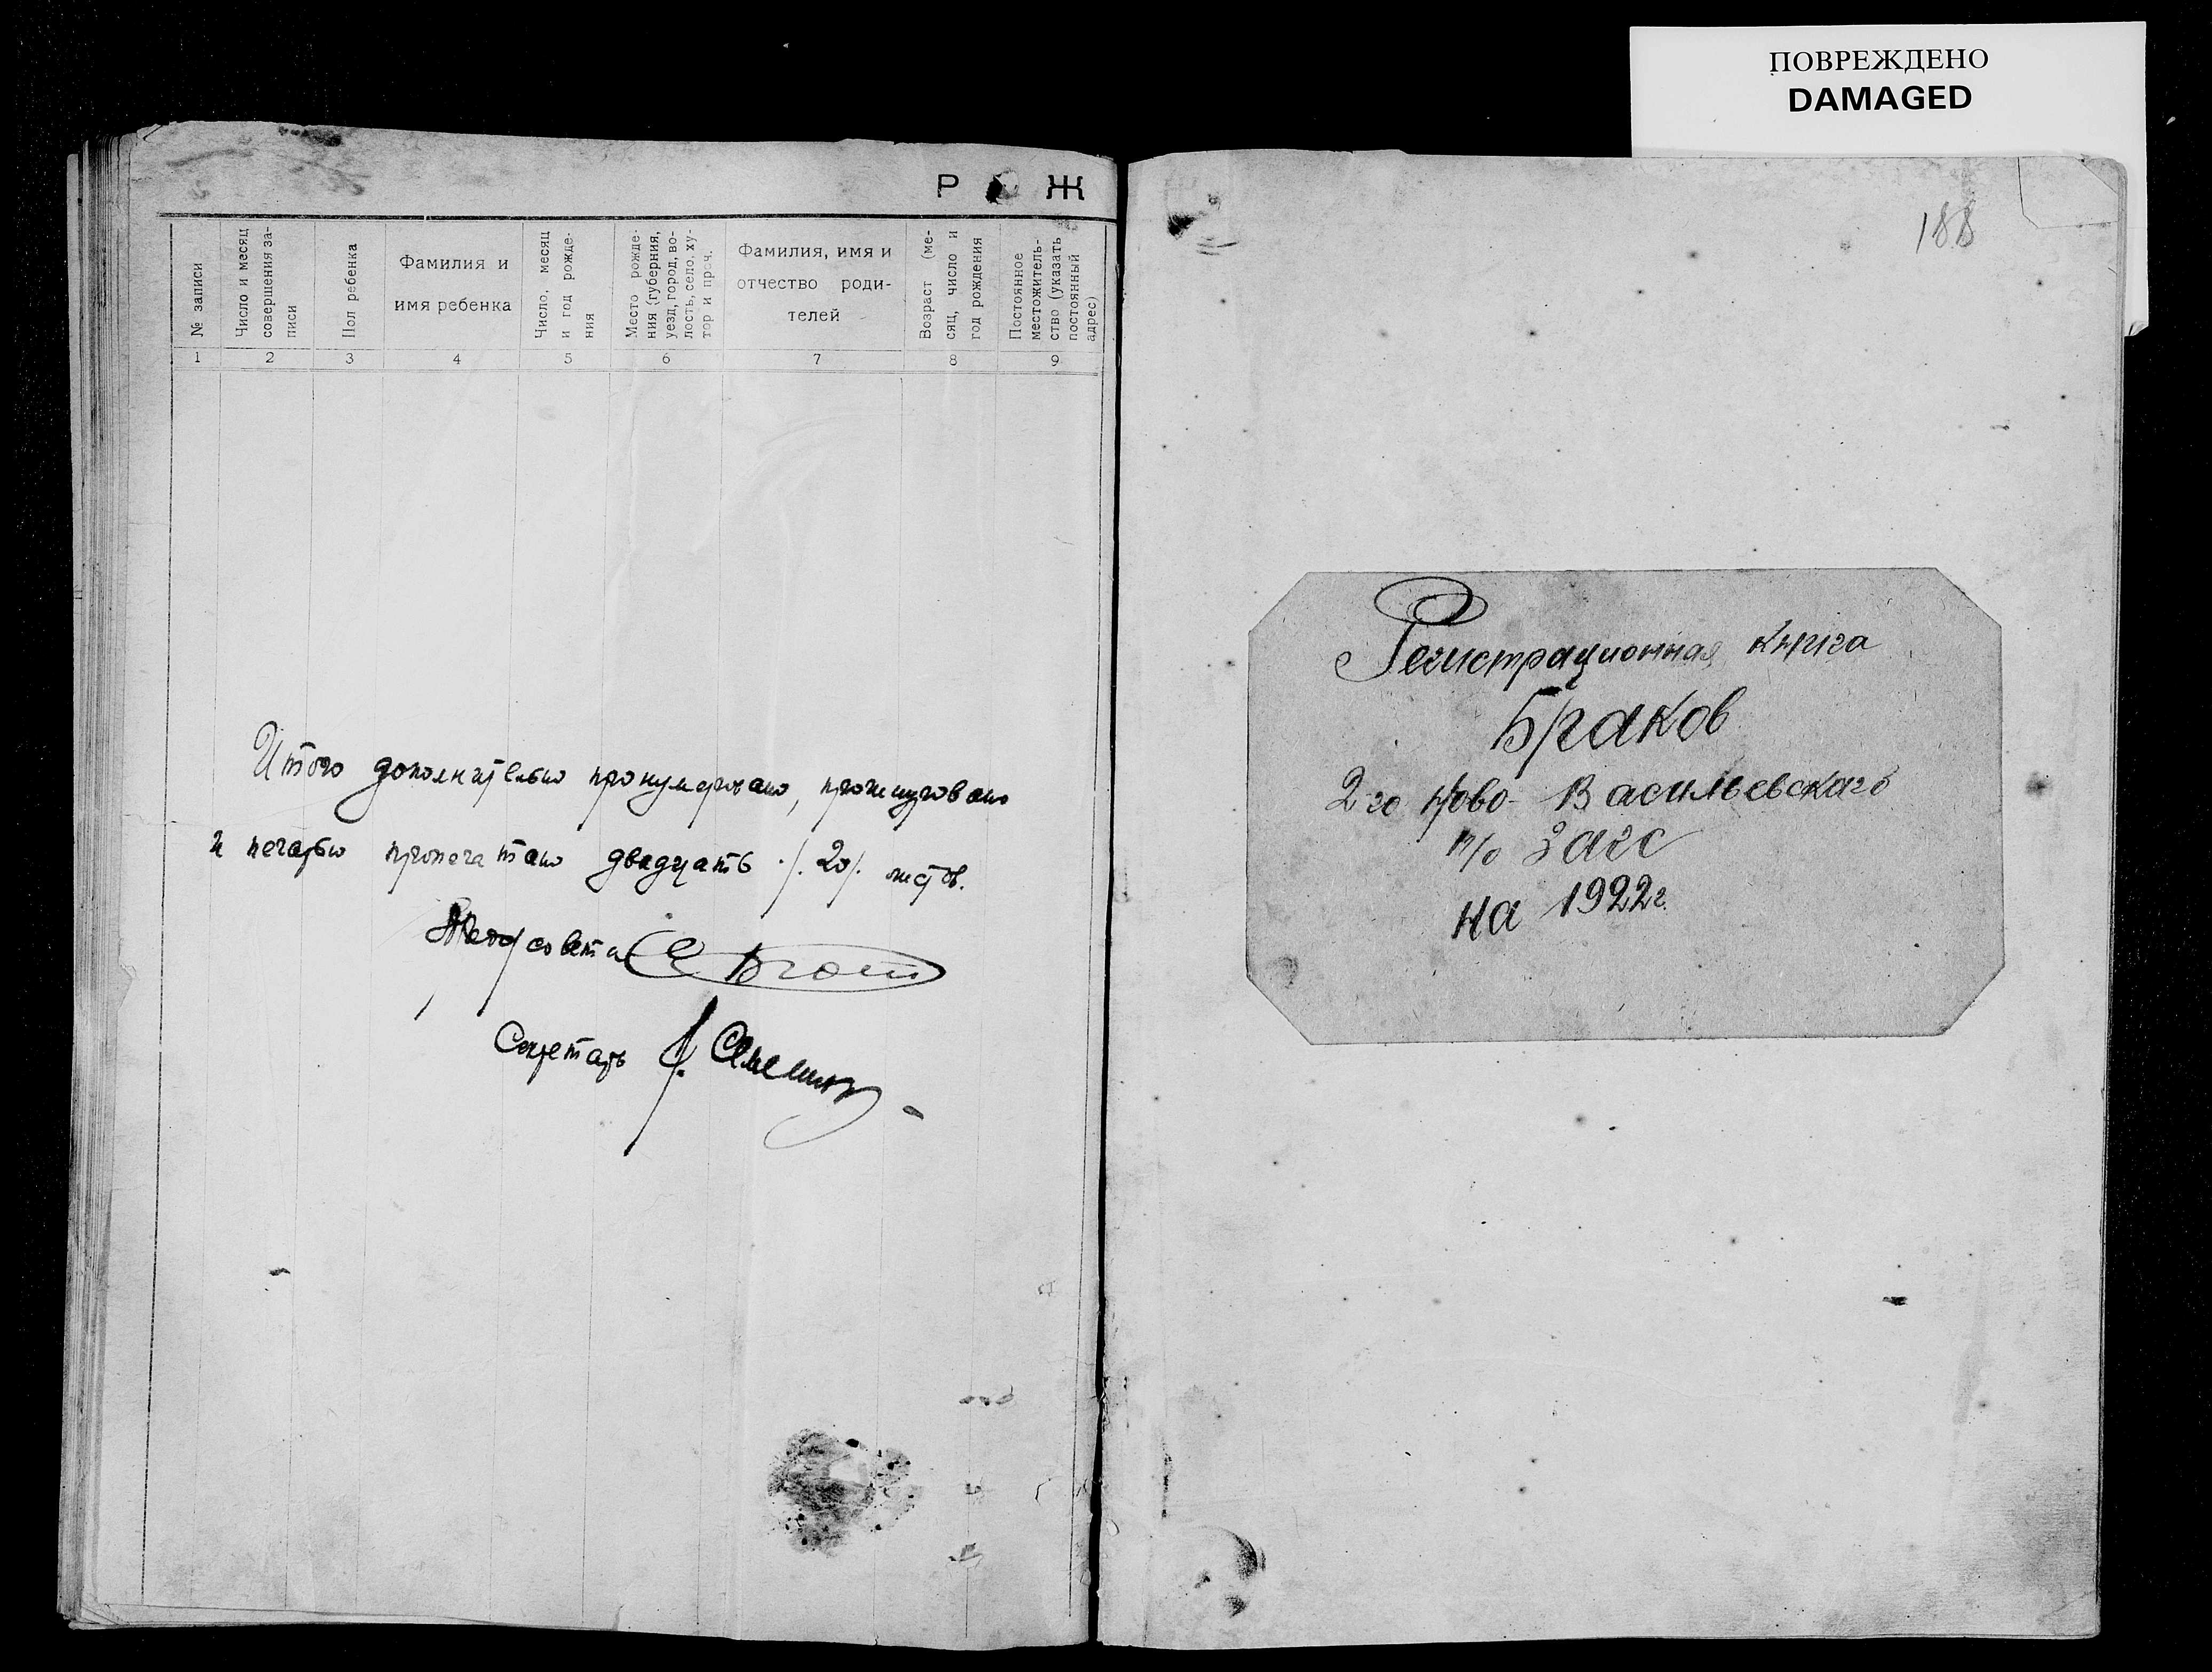 ПОВРЕЖДЕНО
DAMAGED
Р Ж
№ записи
Число и месяц
совершения за-
писи
Пол ребенка
Фамилия и
имя ребенка
Число, месяц
и год рожде-
ния
Место рожде-
ния (губерния,
уезд, город, во-
лость, село, ху-
тор и проч.
Фамилия, имя и
отчество роди-
телей
Возраст (ме-
сяц, число и
год рождения
Постоянное
местожитель-
ство (указать
постоянный
адрес)
1 2 3 4 5 6 7 8 9
Итого дополнительно пронумеровано, прошнуровано
и печатью пропечатано двадцать /.20/. листов.
совета
Секретарь
188
Регистрационная книга
Браков
2го Ново-Васильевского
п/о Загс
на 1922г.